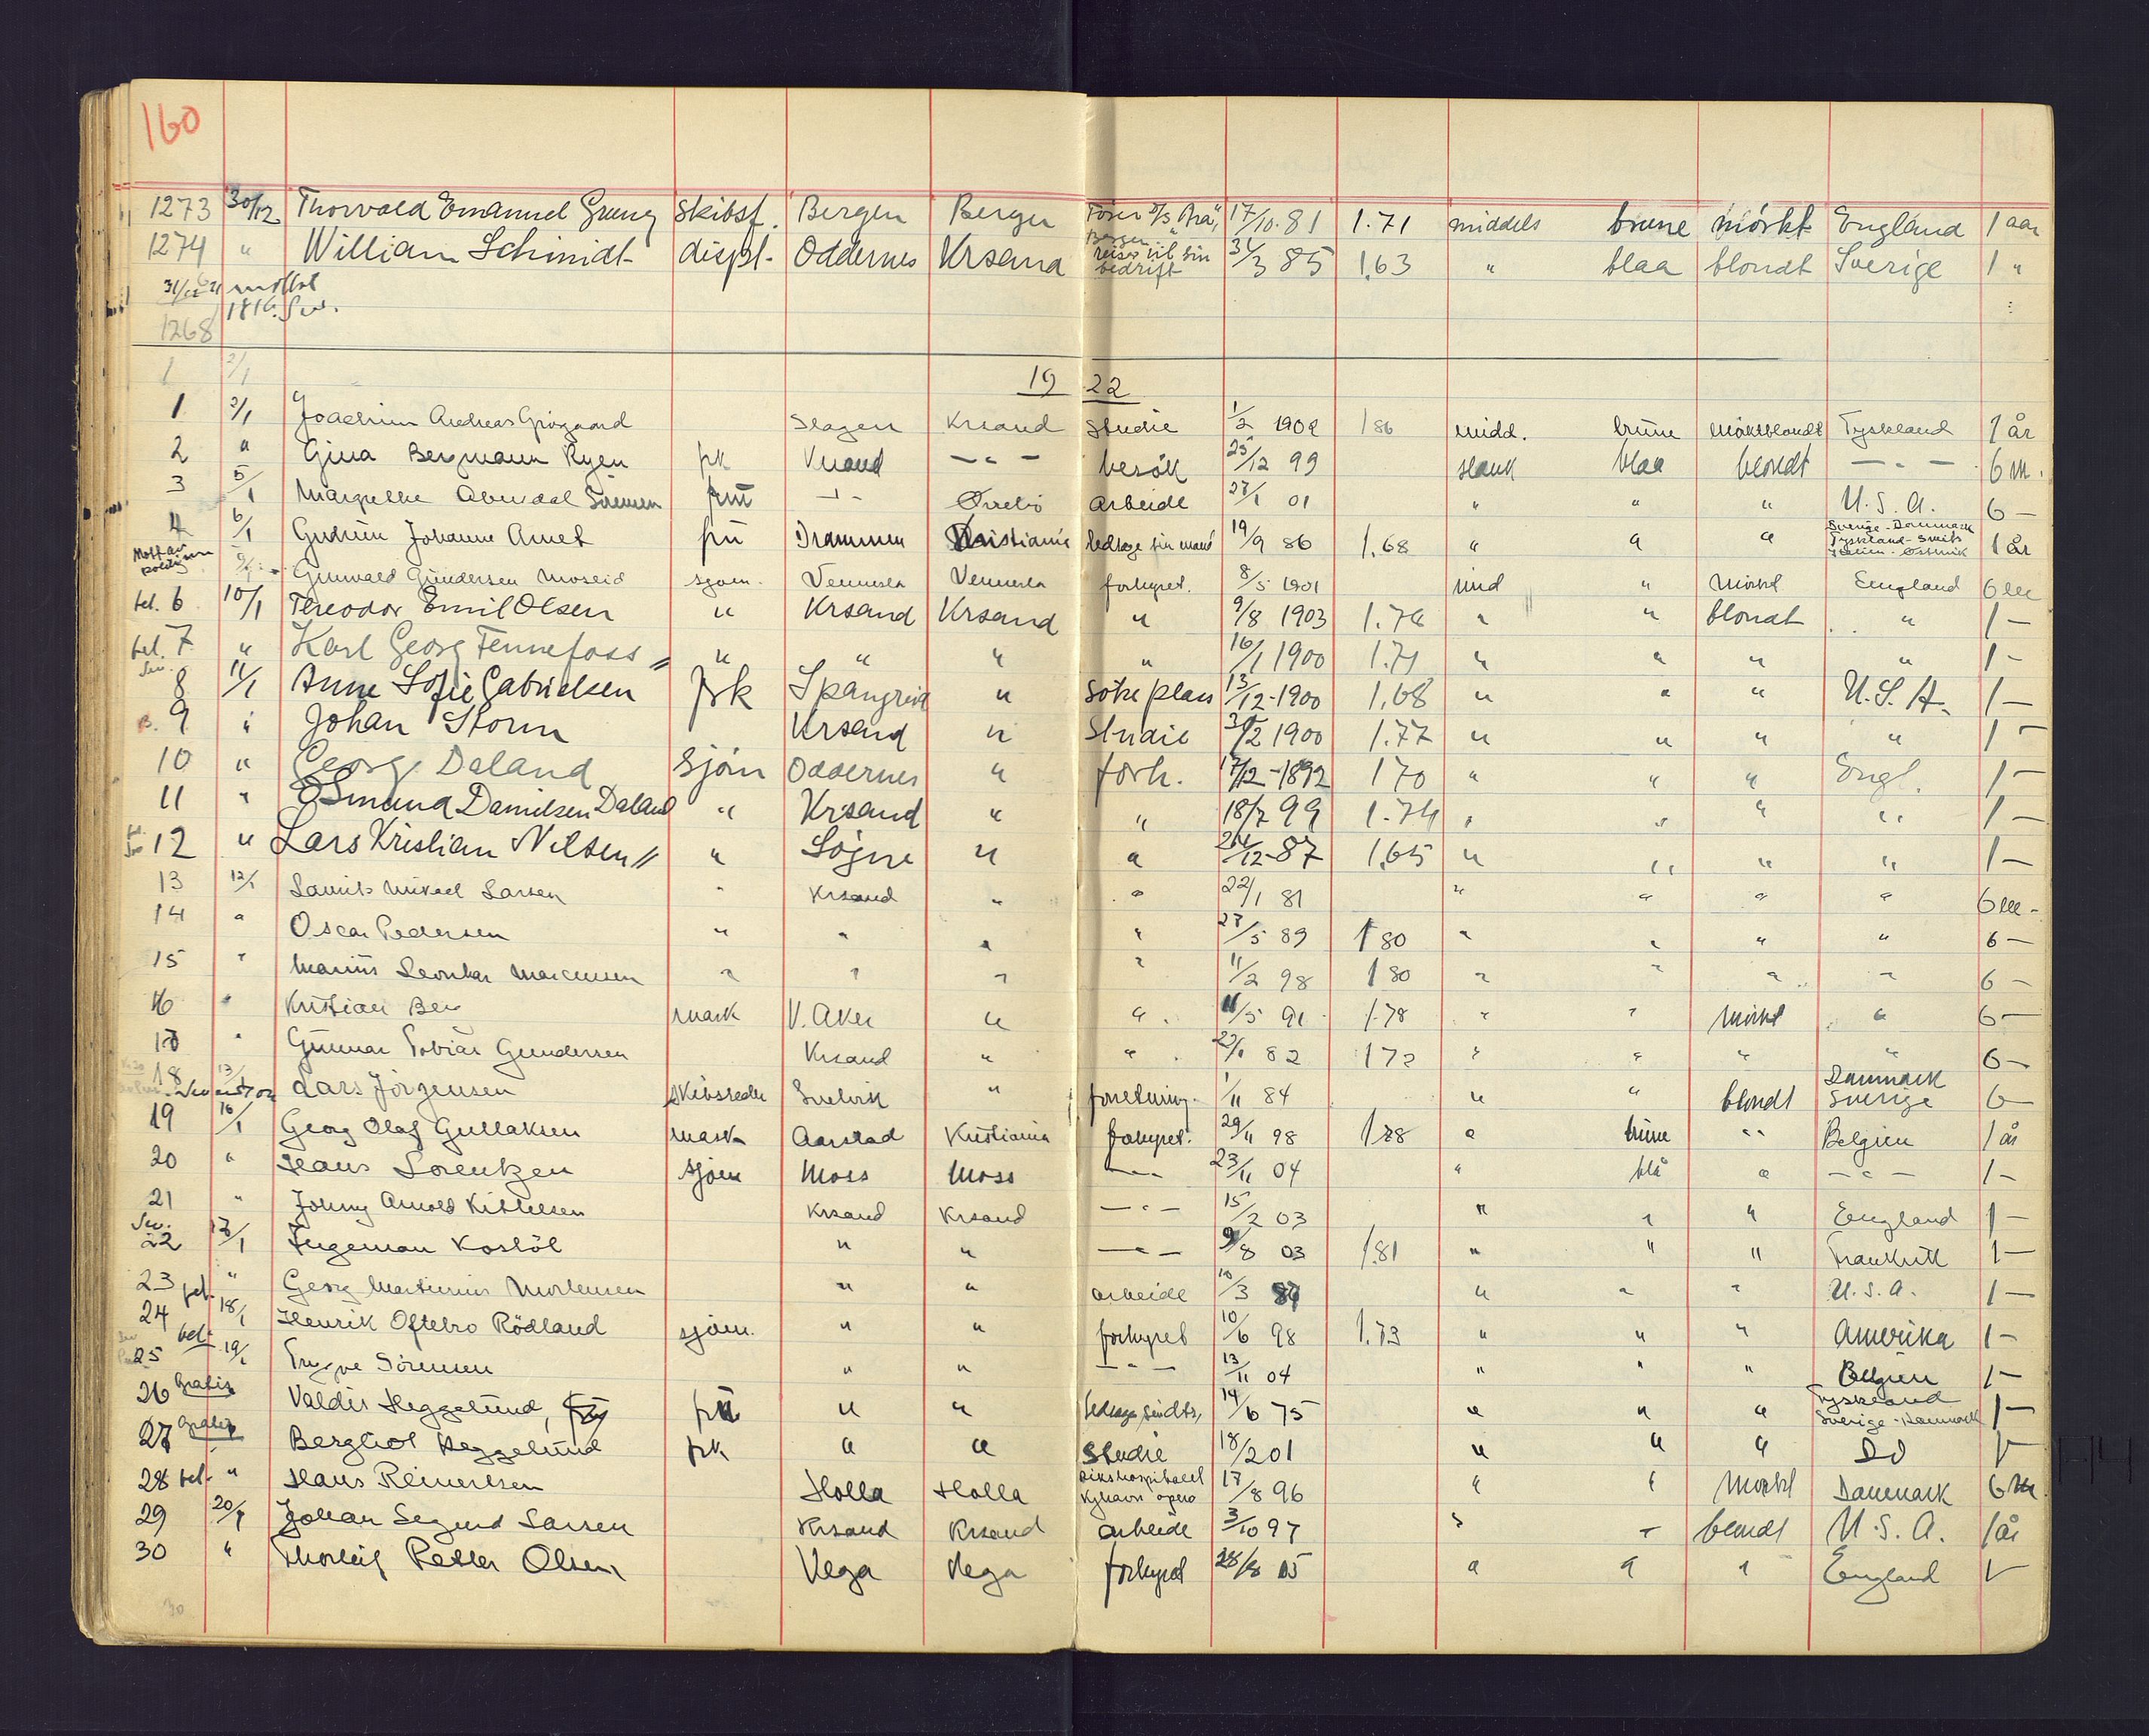 160
1273 30/12 Thorvald Emanuel Grung Skibsf. Bergen Bergen Fører D/S "Ara", Bergen 17/10.81 1.71 middels brune mörkt England 1 aar
1274 " William Schmidt displ. Oddernes Krsand reise til sin bedrift 31/3 85 1.63 " blaa blondt Sverige 1 "
1268
1 2/1
19 22
1 2/1 Joachim Andreas Grögaard Slagen Krsand Studie 1/2 1902 1 86 midd. brune mörkblondt Tyskland 1 år
2 " Gina Bergmann Ryen frk Krsand — " — besök 25/12 99 slank blaa blondt — " — 6 m.
3 5/1 Margrethe Abendal Sörensen frü — " — Örebro Arbeide 27/1 01 " " " U.S.A. 6 —
4 6/1 Gudrün Johanne Arnet frü Drammen Kristiania ledsage sin mand 19/9 86 1.68 " " " Sverige - Danmark Tyskland - Italien 1 år
Mott av politiet Gunvald Gündersen Moseid sjöm. Vennesla Vennesla forhyret. 8/5 1901 mid " Mörkt England 6 m
bet. 6 10/1 Theodor Emil Olsen " Krsand Krsand " 9/8 1903 1.76 " " blondt " 1 —
bet. 7 " Karl Georg Fennefoss " " " " 16/1 1900 1.71 " " " " 1 —
8 11/1 Anne Sofie Gabrielsen frk Spangreid " Söke plass 13/12-1900 1.68 " " " U.S.A. 1 —
B. 9 " Johan Storm Krsand " Studie 1900 1.77 " " " " 1 —
10 " Georg Daland Sjöm Oddernes " forh. 17/12-1892 170 " " " Engl. 1 —
11 " Osmund Danielsen Daland " Krsand " " 18/7 99 1.74 " " " " 1 —
12 " Lars Kristian Nilsen " Søgne " " 24/12-87 1.65 " " " " 1 —
13 12/1 Laurits Mikael Larsen " Krsand " " 22/1 81 " " " " 6 m -
14 " Oscar Pedersen " " " " 27/5 89 1 80 " " " " 6 —
15 " Mariüs Leonhar Marcussen " " " " 11/2 98 1 80 " " " " 6 —
16 " Kristian Berg mask V. Aker " " 11/5 91 1.78 " " Mörkt " 6 —
17 " Günnar Tobias Gundersen Krsand " " 82 172 " " " " 6 —
18 13/1 Lars Jörgensen Skibsreder Svelvik " forretning. 1/11 84 " " blondt Danmark Sverige 6 —
19 16/1 Georg Olaf Gullaksen mask Aarstad Kristiania forhyret. 29/11 98 1.78 " brüne " Belgien 1 år
20 " Hans Lorentzen sjöm Moss Moss — " — 23/11 04 " blå " — " — 1 —
21 " Johny Arnold Kittelsen Krsand Krsand — " — 15/2 03 " " " England 1 —
22 17/1 Ingeman Kostöl " " — " — 9/8 03 1.81 " " " Frankrik 1 —
23 " Georg Martinius Mortensen " " arbeide 10/3 84 " " " U.S.A. 1 —
24 bet. 18/1 Henrik Oftebro Rödland sjöm. " " forhyret 10/6 98 1.73 " " " Amerika 1 —
25 bet. 19/1 Trygve Sörensen " " — " — 13/11 04 " " " Belgien 1 —
26 Gratis Valdis Heggelund, frü " " 14/6 75 " " " Tyskland Sverige - Danmark 1 —
27 Gratis Bergliot Heggelund frk " " Studie 18/2 01 " " " Do 1 —
28 bet. " Hans Reinertsen Holla Holla Rikshospitalet Kjhavn opera 17/8 96 " " Mörkt Danmark 6 M.
29 20/1 Johan Sigurd Larsen Krsand Krsand arbeide 3/10 97 " " blondt U.S.A. 1 år
30 " Thorleif Petter Olsen Vega Vega forhyret 28/8 05 " " " England 1 —
30